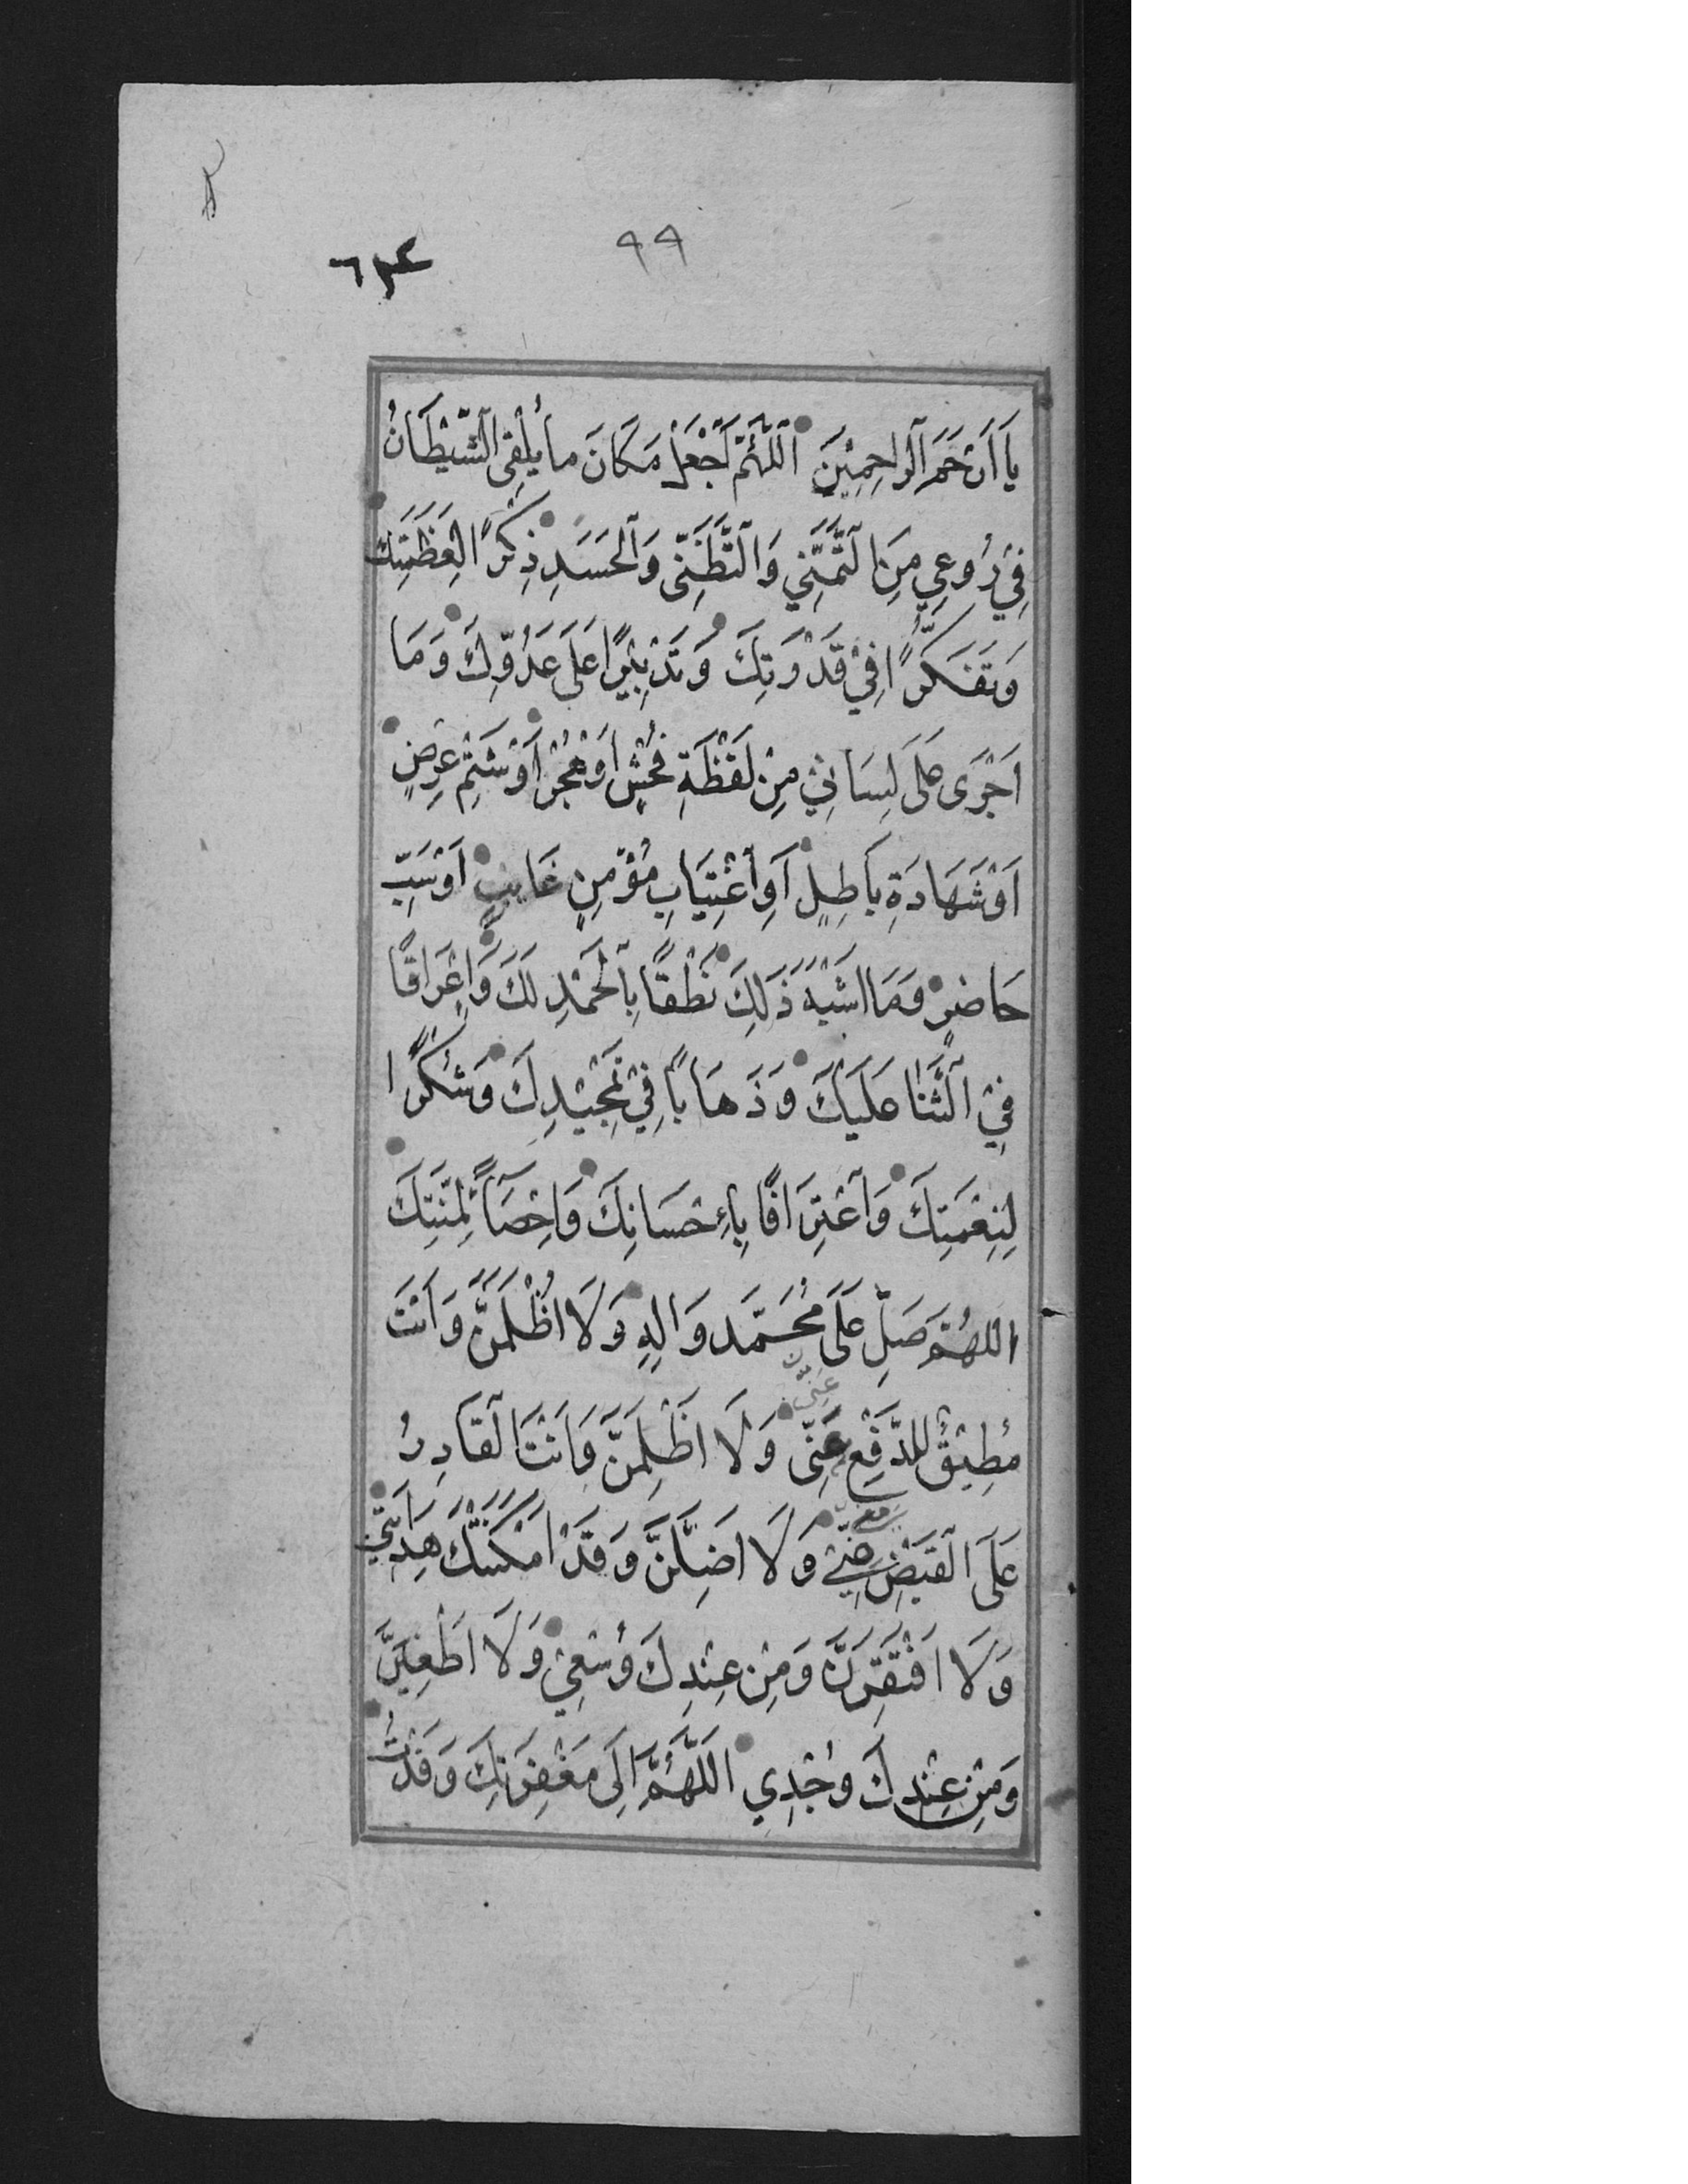 ٩٩
٦٣٤
يَا اَرْحَمَ الرَّاحِمِيْنَ اَللّٰهُمَّ اجْعَلْ مَكَانَ مَا يُلْقِى الشَّيْطَانُ
فِيْ رُوعِي مِنَ التَّمَنِّي وَالتَّظَنِّى وَالْحَسَدِ ذِكْرًا لِعَظَمَتِكَ
وَتَفَكُّرًا فِيْ قُدْرَتِكَ وَتَدْبِيْرًا عَلَى عَدُوِّكَ وَمَا
اَجْرَى عَلَى لِسَانِيْ مِنْ لَفْظَةِ فُحْشٍ اَوْ هُجْرٍ اَوْ شَتْمِ عِرْضٍ
اَوْ شَهَادَةِ بَاطِلٍ اَوِ اغْتِيَابِ مُؤْمِنٍ غَايِبٍ اَوْ سَبِّ
حَاضِرٍ وَمَا اَشْبَهَ ذَلِكَ نُطْقًا بِالْحَمْدِ لَكَ وَاِغْرَاقًا
فِيْ الثَّنَا عَلَيْكَ وَذَهَابًا فِيْ تَمْجِيْدِكَ وَشُكْرًا
لِنِعْمَتِكَ وَاعْتِرَافًا بِاِحْسَانِكَ وَاِحْصَآءً لِمِنَنِكَ
اَللّٰهُمَّ صَلِّ عَلَى مُحَمَّد وَالِهِ وَلَا اُظْلَمَنَّ وَاَنْتَ
عَنِّى
مُطِيْقٌ لِلدَّفْعِ عَنِّى وَلَا اَظْلِمَنَّ وَاَنْتَ الْقَادِرُ
عَلَى الْقَبْضِ مِنِّي وَلَا اَضِلَّنَّ وَقَدْ اَمْكَنَتْكَ هِدَايَتِي
وَلَا اَفْتَقِرَنَّ وَمِنْ عِنْدِكَ وُسْعِيْ وَلَا اَطْغَيَنَّ
وَمِنْ عِنْدِكَ وُجْدِي اَللّٰهُمَّ اِلَى مَغْفِرَتِكَ وَفَدْتُ